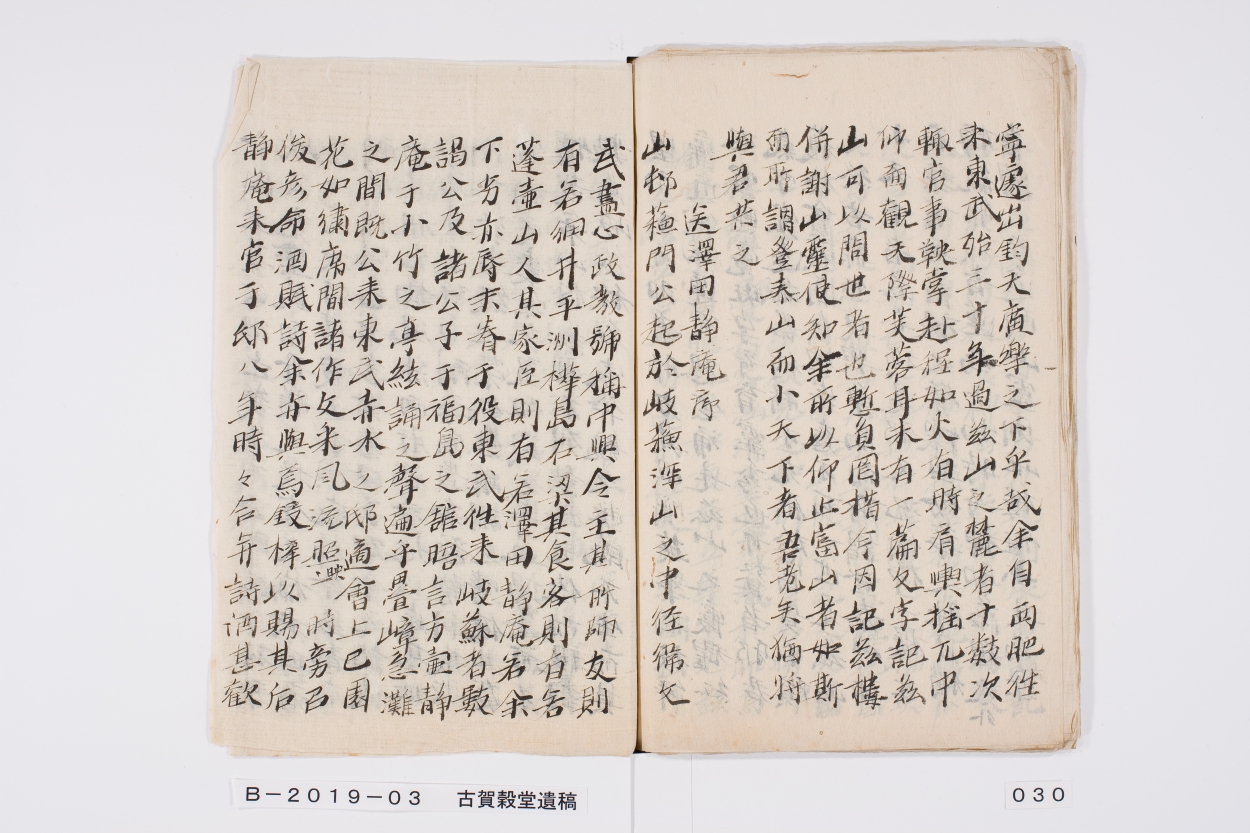 寧遽出鈞天廣樂之下乎哉余自両肥徃
来東武殆三十年過茲山之麓者十數次
輙官事鞅掌赴程如火有時肩輿揺兀中
仰而觀天際芙蓉耳未有一篇文字記茲
山可以問世者也慙負罔措今因記茲樓
併謝山靈使知余所以仰止富山者如斯
而所謂登泰山而小天下者吾老矣猶将
與君共之
送澤田静庵序
山邨蘓門公起於岐蘓深山之中経緯文
武盡心政教號稱中興令主其所師友則
有若細井平洲樺島石梁其食客則有若
蓬壷山人其家臣則有若澤田静庵若余
下劣亦辱末眷于役東武徃来岐蘇者數
謁公及諸公子于福島之舘晤言方壷静
庵于小竹之亭絃誦之聲遍乎疊嶂急灘
之間既公来東武赤水之邸適會上巳園
花如繍席間諸作文采風流照映一時旁召
俊彦命酒賦詩余亦與焉鋟梓以賜其后
静庵来官于邸八年時々合并詩酒甚歓
B－2019－03 古賀穀堂遺稿
030